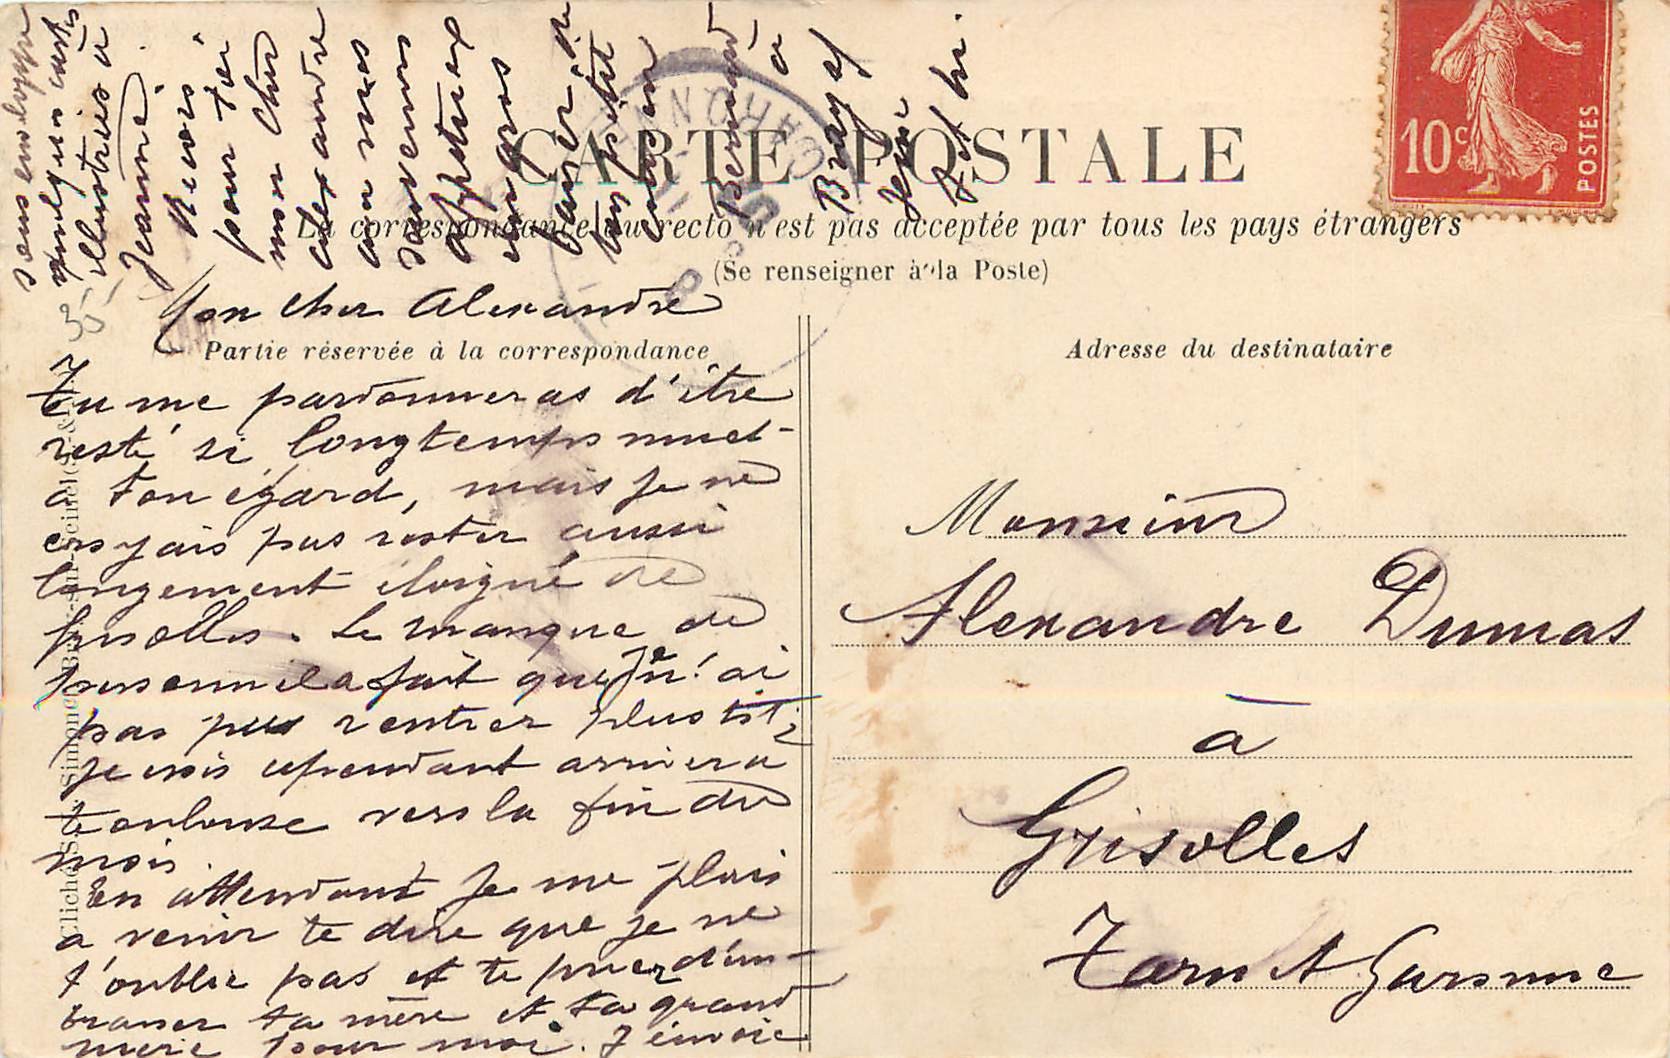 CARTE POSTALE
La correspondance au recto n'est pas acceptée par tous les pays étrangers
(Se renseigner à la Poste)
Partie réservée à la correspondance
Adresse du destinataire
10c
POSTES
Mon cher Alexandre
Tu me pardonneras d'être
resté si longtemps muet
a ton égard, mais je ne
croyais pas rester aussi
longement éloigné de
Grisolles. Le manque de
personnel a fait que je n'ai
pas pus rentrer plus tôt,
je vais cependant arriver a
toulouse vers la fin du
mois
En attendant je me plais
a venir te dire que je ne
t'oublie pas et te prier d'em-
brasser ta mère et ta grand
mère pour moi. J'envoie
sous enveloppe
quelques cartes
illustrées a
Jeanne.
Recois
pour toi
mon cher
alexandre
mes
souvenirs
affectueux
un gros
baiser de
ton petit
cousin
Bernard
a
Bray s/
Seine
Monsieur
Alexandre Dumas
à
Grisolles
Tarn et Garonne